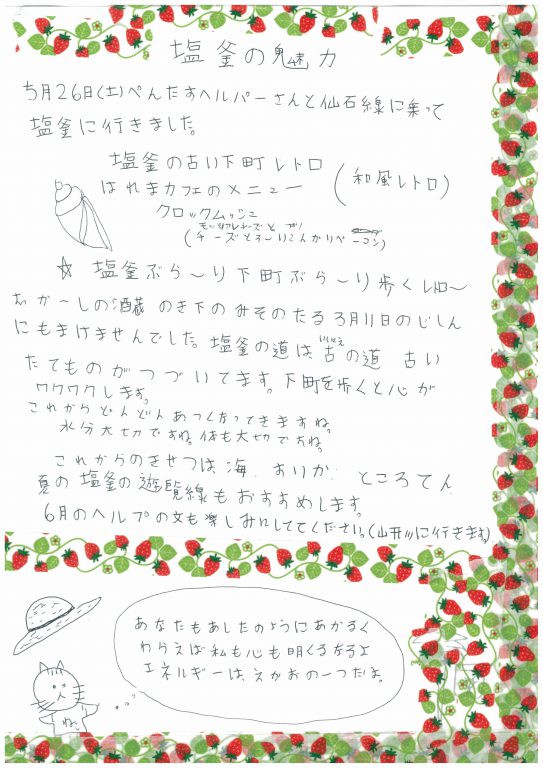 塩釜の魅力
5月26日(土)ぺんたすヘルパーさんと仙石線に乗って
塩釜に行きました。
塩釜の古い下町レトロ
はれまカフェのメニュー
(和風レトロ)
クロックムッシュ
(チーズとろ〜りこんがりベーコン)
☆ 塩釜ぶら〜り下町ぶら〜り歩く
むか〜しの酒蔵 のき下のみそのたる3月11日のじしん
にもまけませんでした。塩釜の道は古の道 古い
いにしえ
たてものがつづいてます。下町を歩くと心が
ワクワクします。
これからどんどんあつくなってきますね。
水分大切ですね。体も大切ですね。
これからのきせつは海. ところてん
夏の塩釜の遊覧線もおすすめします。
6月のヘルプの文も楽しみにしててください。(山形に行きます)
あなたもあしたのようにあかるく
わらえば私も心も明くるなるよ
エネルギーは、えがおの一つだよ。
ねこ